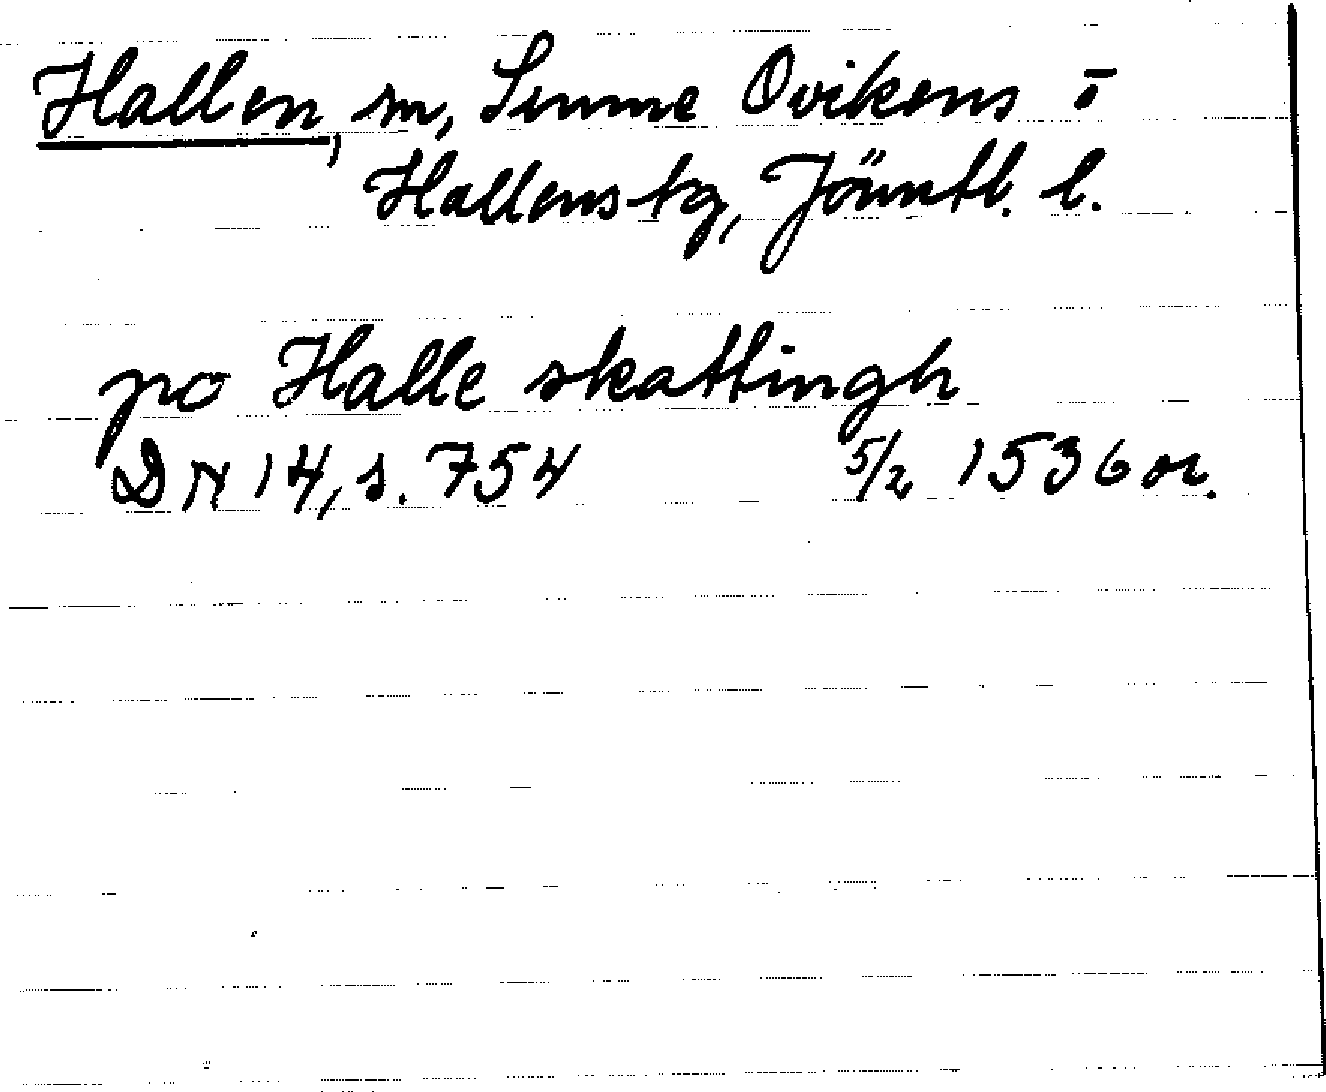 Hallen, sn, Sunne Ovikens o
Hallens tg, Jämtl. l.
po Halle skattingh
DN 14, s. 754 5/2 1536 or.